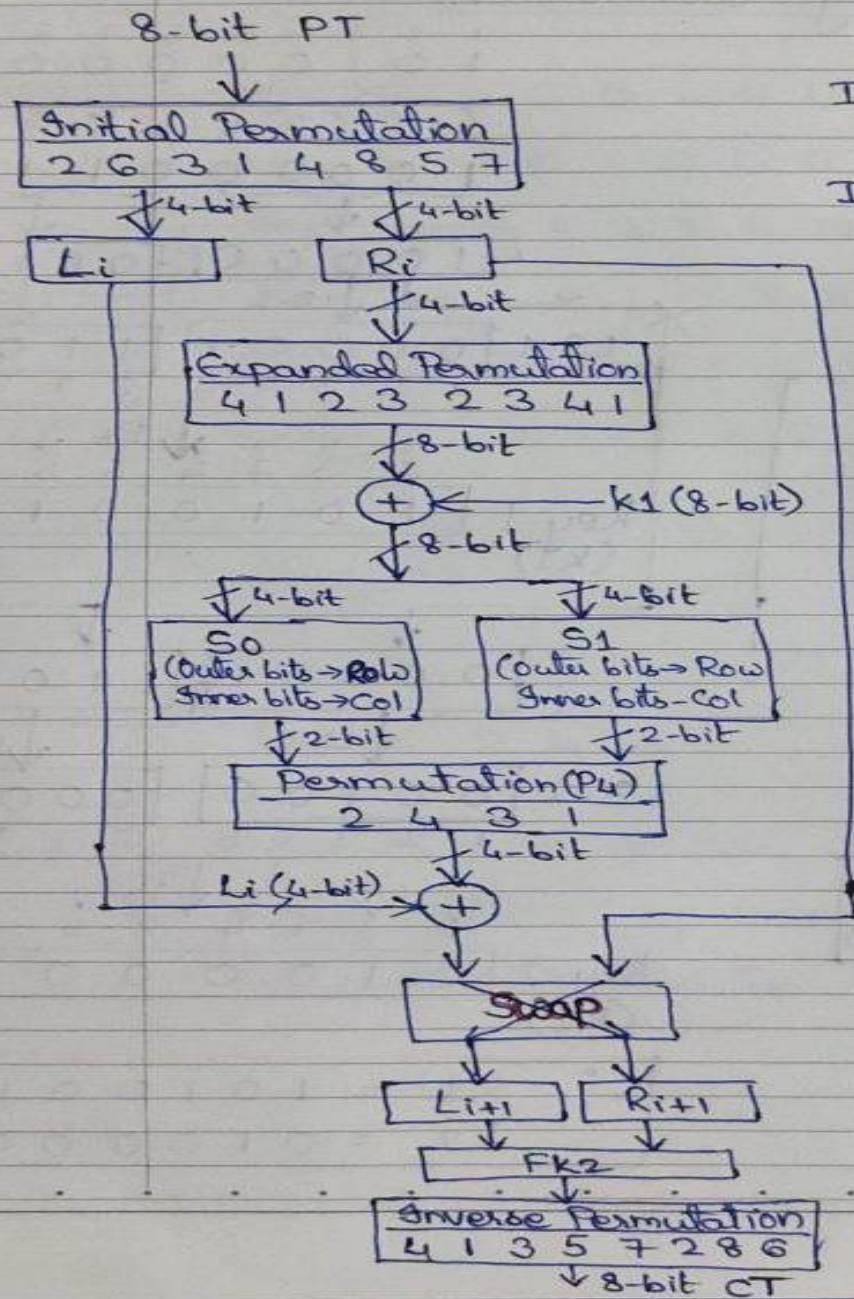 8-bit PT
I
Initial Permutation
2 6 3 1 4 8 5 7
I
4-bit 4-bit
Li Ri
4-bit
Expanded Permutation
4 1 2 3 2 3 4 1
8-bit
+ K1 (8-bit)
8-bit
4-bit 4-bit
S0 S1
(Outer bits→Row (Outer bits→Row
Inner bits→Col Inner bits-Col
2-bit 2-bit
Permutation (P4)
2 4 3 1
4-bit
Li (4-bit) +
Swap
Li+1 Ri+1
FK2
Inverse Permutation
4 1 3 5 7 2 8 6
8-bit CT